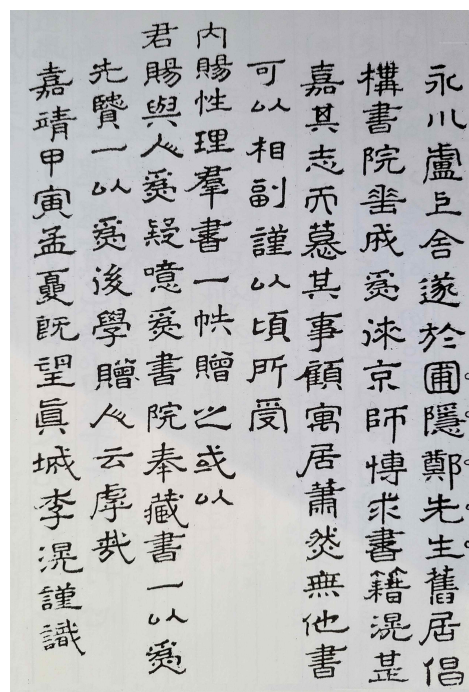 永川盧上舍遂於圃隱鄭先生舊居倡
構書院垂成爲來京師博求書籍滉甚
嘉其志而慕其事顧寓居蕭然無他書
可以相副謹以頃所受
內賜性理羣書一帙贈之或以
君賜與人爲疑噫爲書院奉藏書一以爲
先賢一以爲後學贈人云虖哉
嘉靖甲寅孟夏旣望眞城李滉謹識